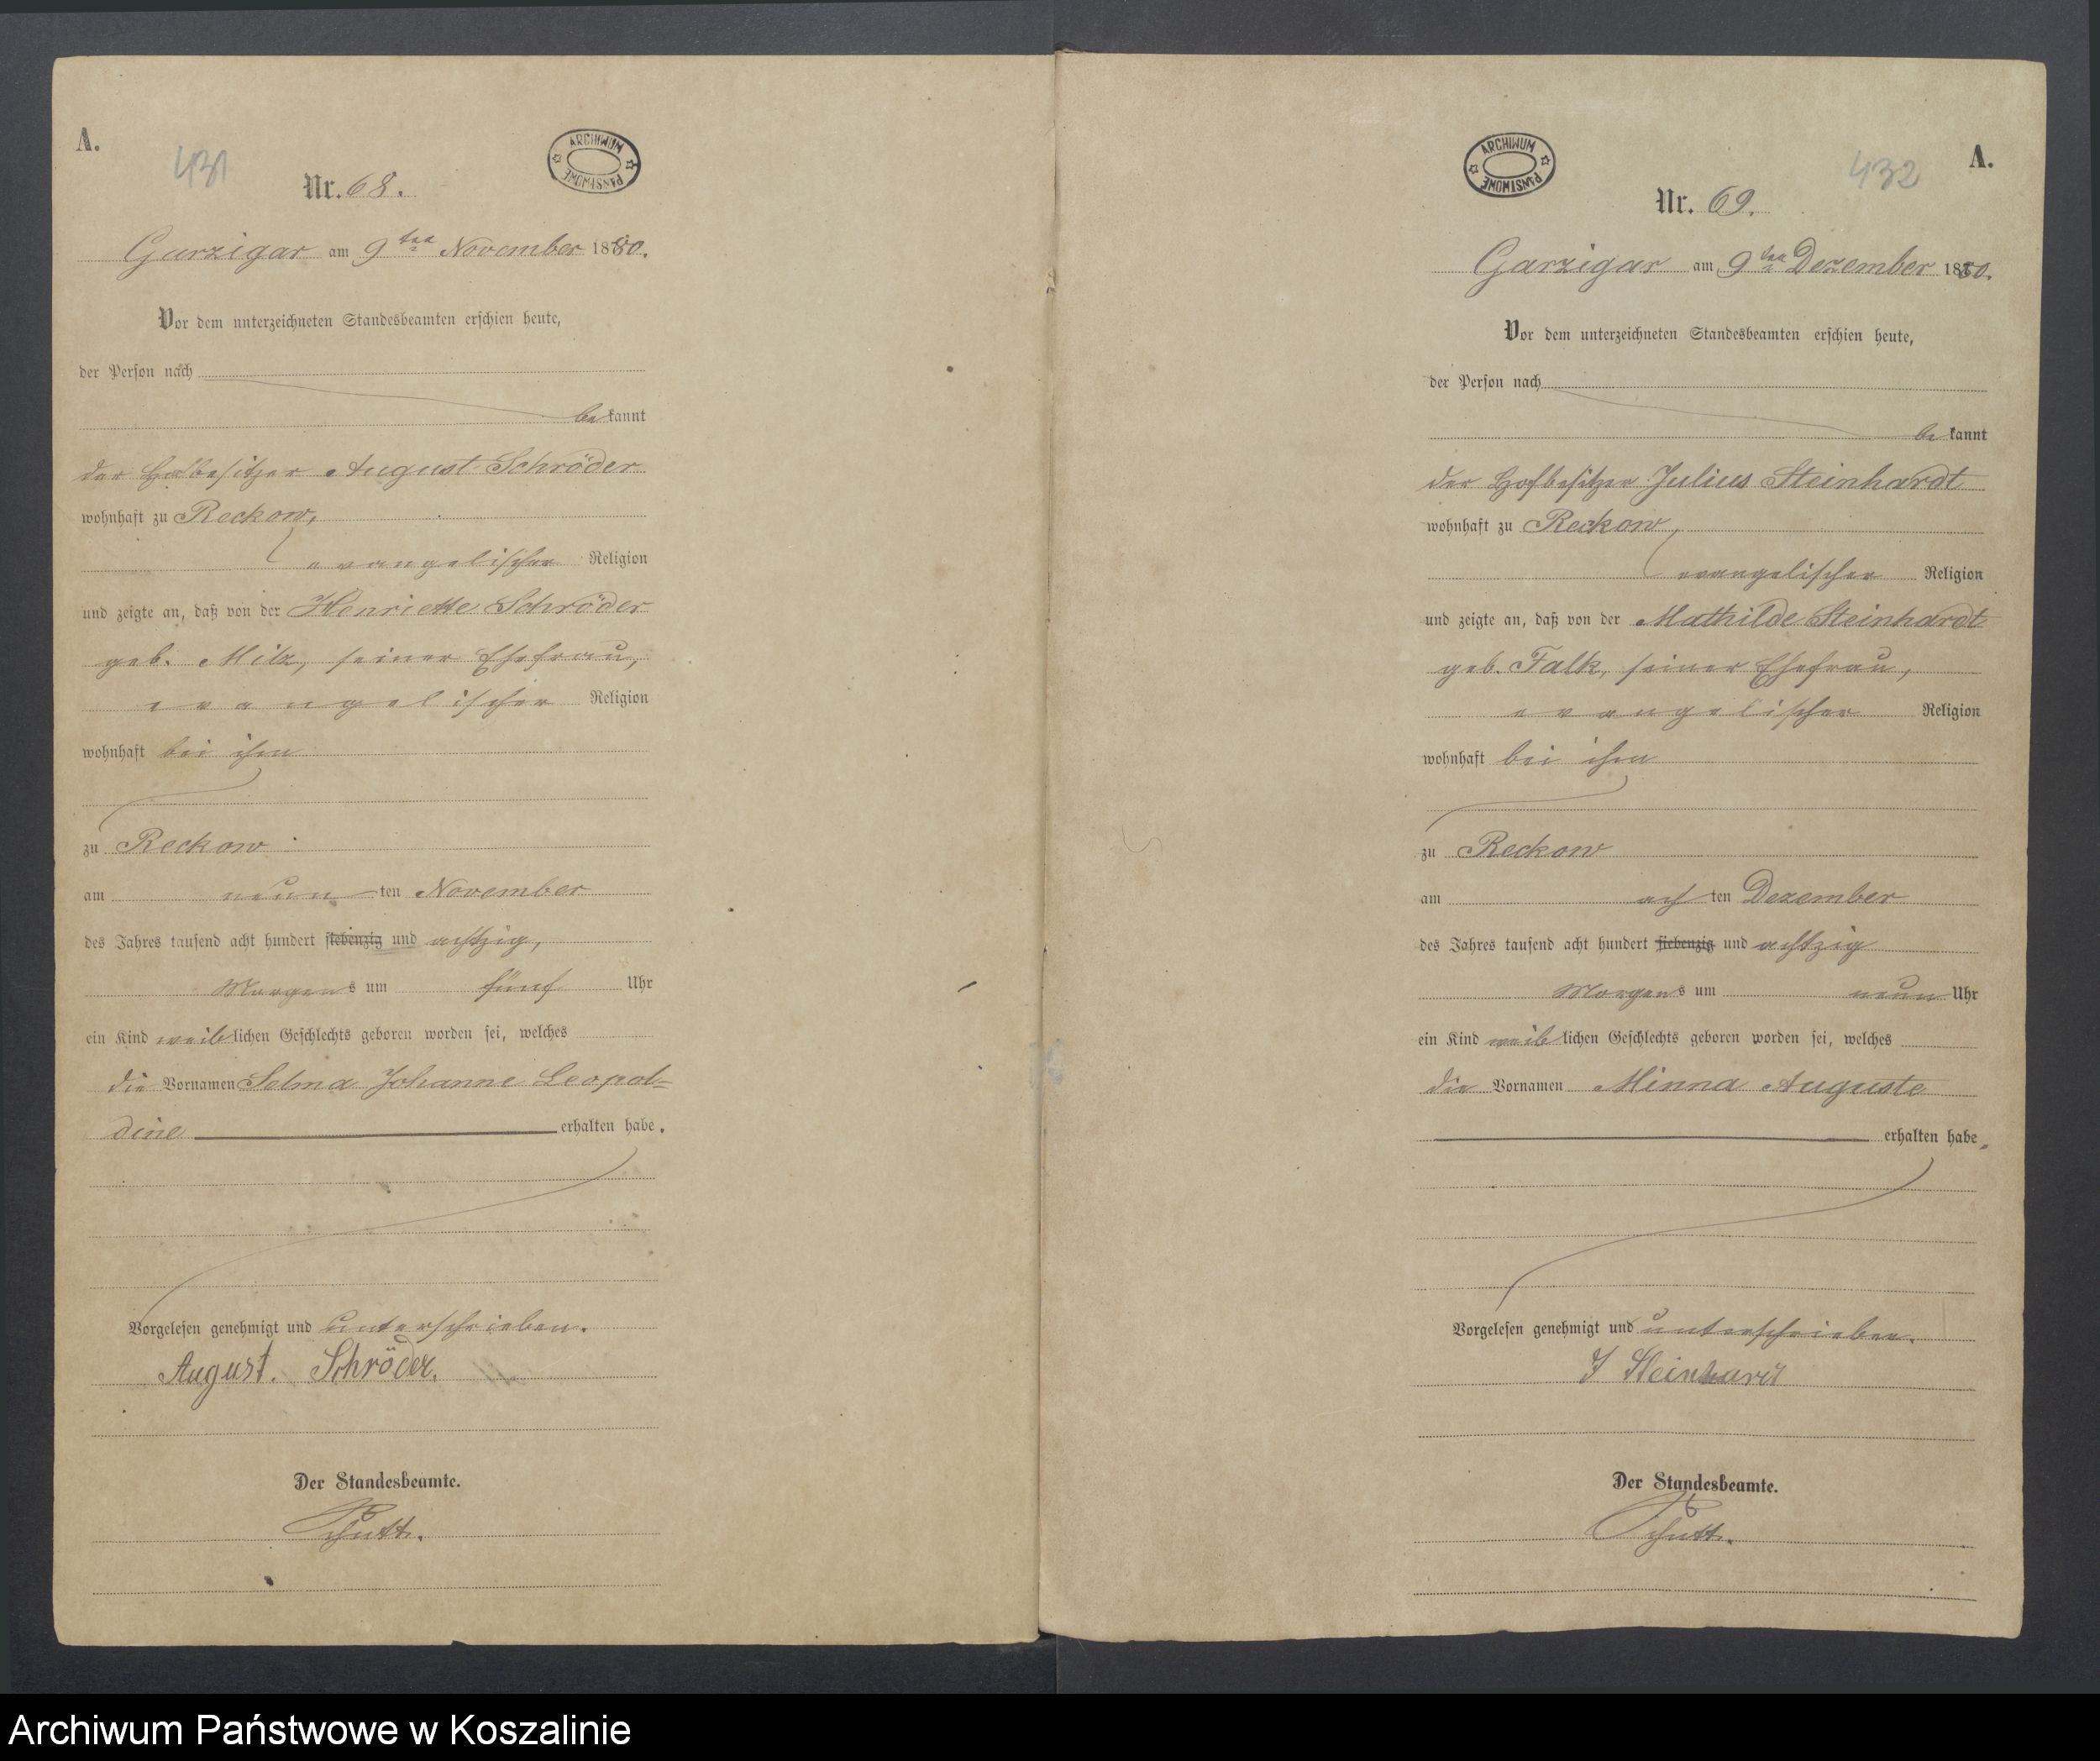 A.
431
Nr. 68.
ARCHIWUM PAŃSTWOWE
Garzigar am 9ten November 1880.
Vor dem unterzeichneten Standesbeamten erschien heute,
der Person nach
bekannt
der Hofbesitzer August Schröder
wohnhaft zu Reckow,
evangelischer Religion
und zeigte an, daß von der Henriette Schröder
geb. Milz, seiner Ehefrau,
evangelischer Religion
wohnhaft bei ihm
zu Reckow
am neunten November
des Jahres tausend acht hundert siebenzig und achtzig,
Morgens um fünf Uhr
ein Kind weiblichen Geschlechts geboren worden sei, welches
die Vornamen Selma Johanne Leopol=
dine erhalten habe.
Vorgelesen genehmigt und unterschrieben.
August. Schröder.
Der Standesbeamte.
A.
432
Nr. 69.
ARCHIWUM PAŃSTWOWE
Garzigar am 9ten Dezember 1880.
Vor dem unterzeichneten Standesbeamten erschien heute,
der Person nach
bekannt
der Hofbesitzer Julius Steinhardt
wohnhaft zu Reckow
evangelischer Religion
und zeigte an, daß von der Mathilde Steinhardt
geb. Falk, seiner Ehefrau,
evangelischer Religion
wohnhaft bei ihm
zu Reckow
am achten Dezember
des Jahres tausend acht hundert siebenzig und achtzig
Morgens um neun Uhr
ein Kind weiblichen Geschlechts geboren worden sei, welches
die Vornamen Minna Auguste
erhalten habe.
Vorgelesen genehmigt und unterschrieben.
J Steinhardt
Der Standesbeamte.
Archiwum Państwowe w Koszalinie